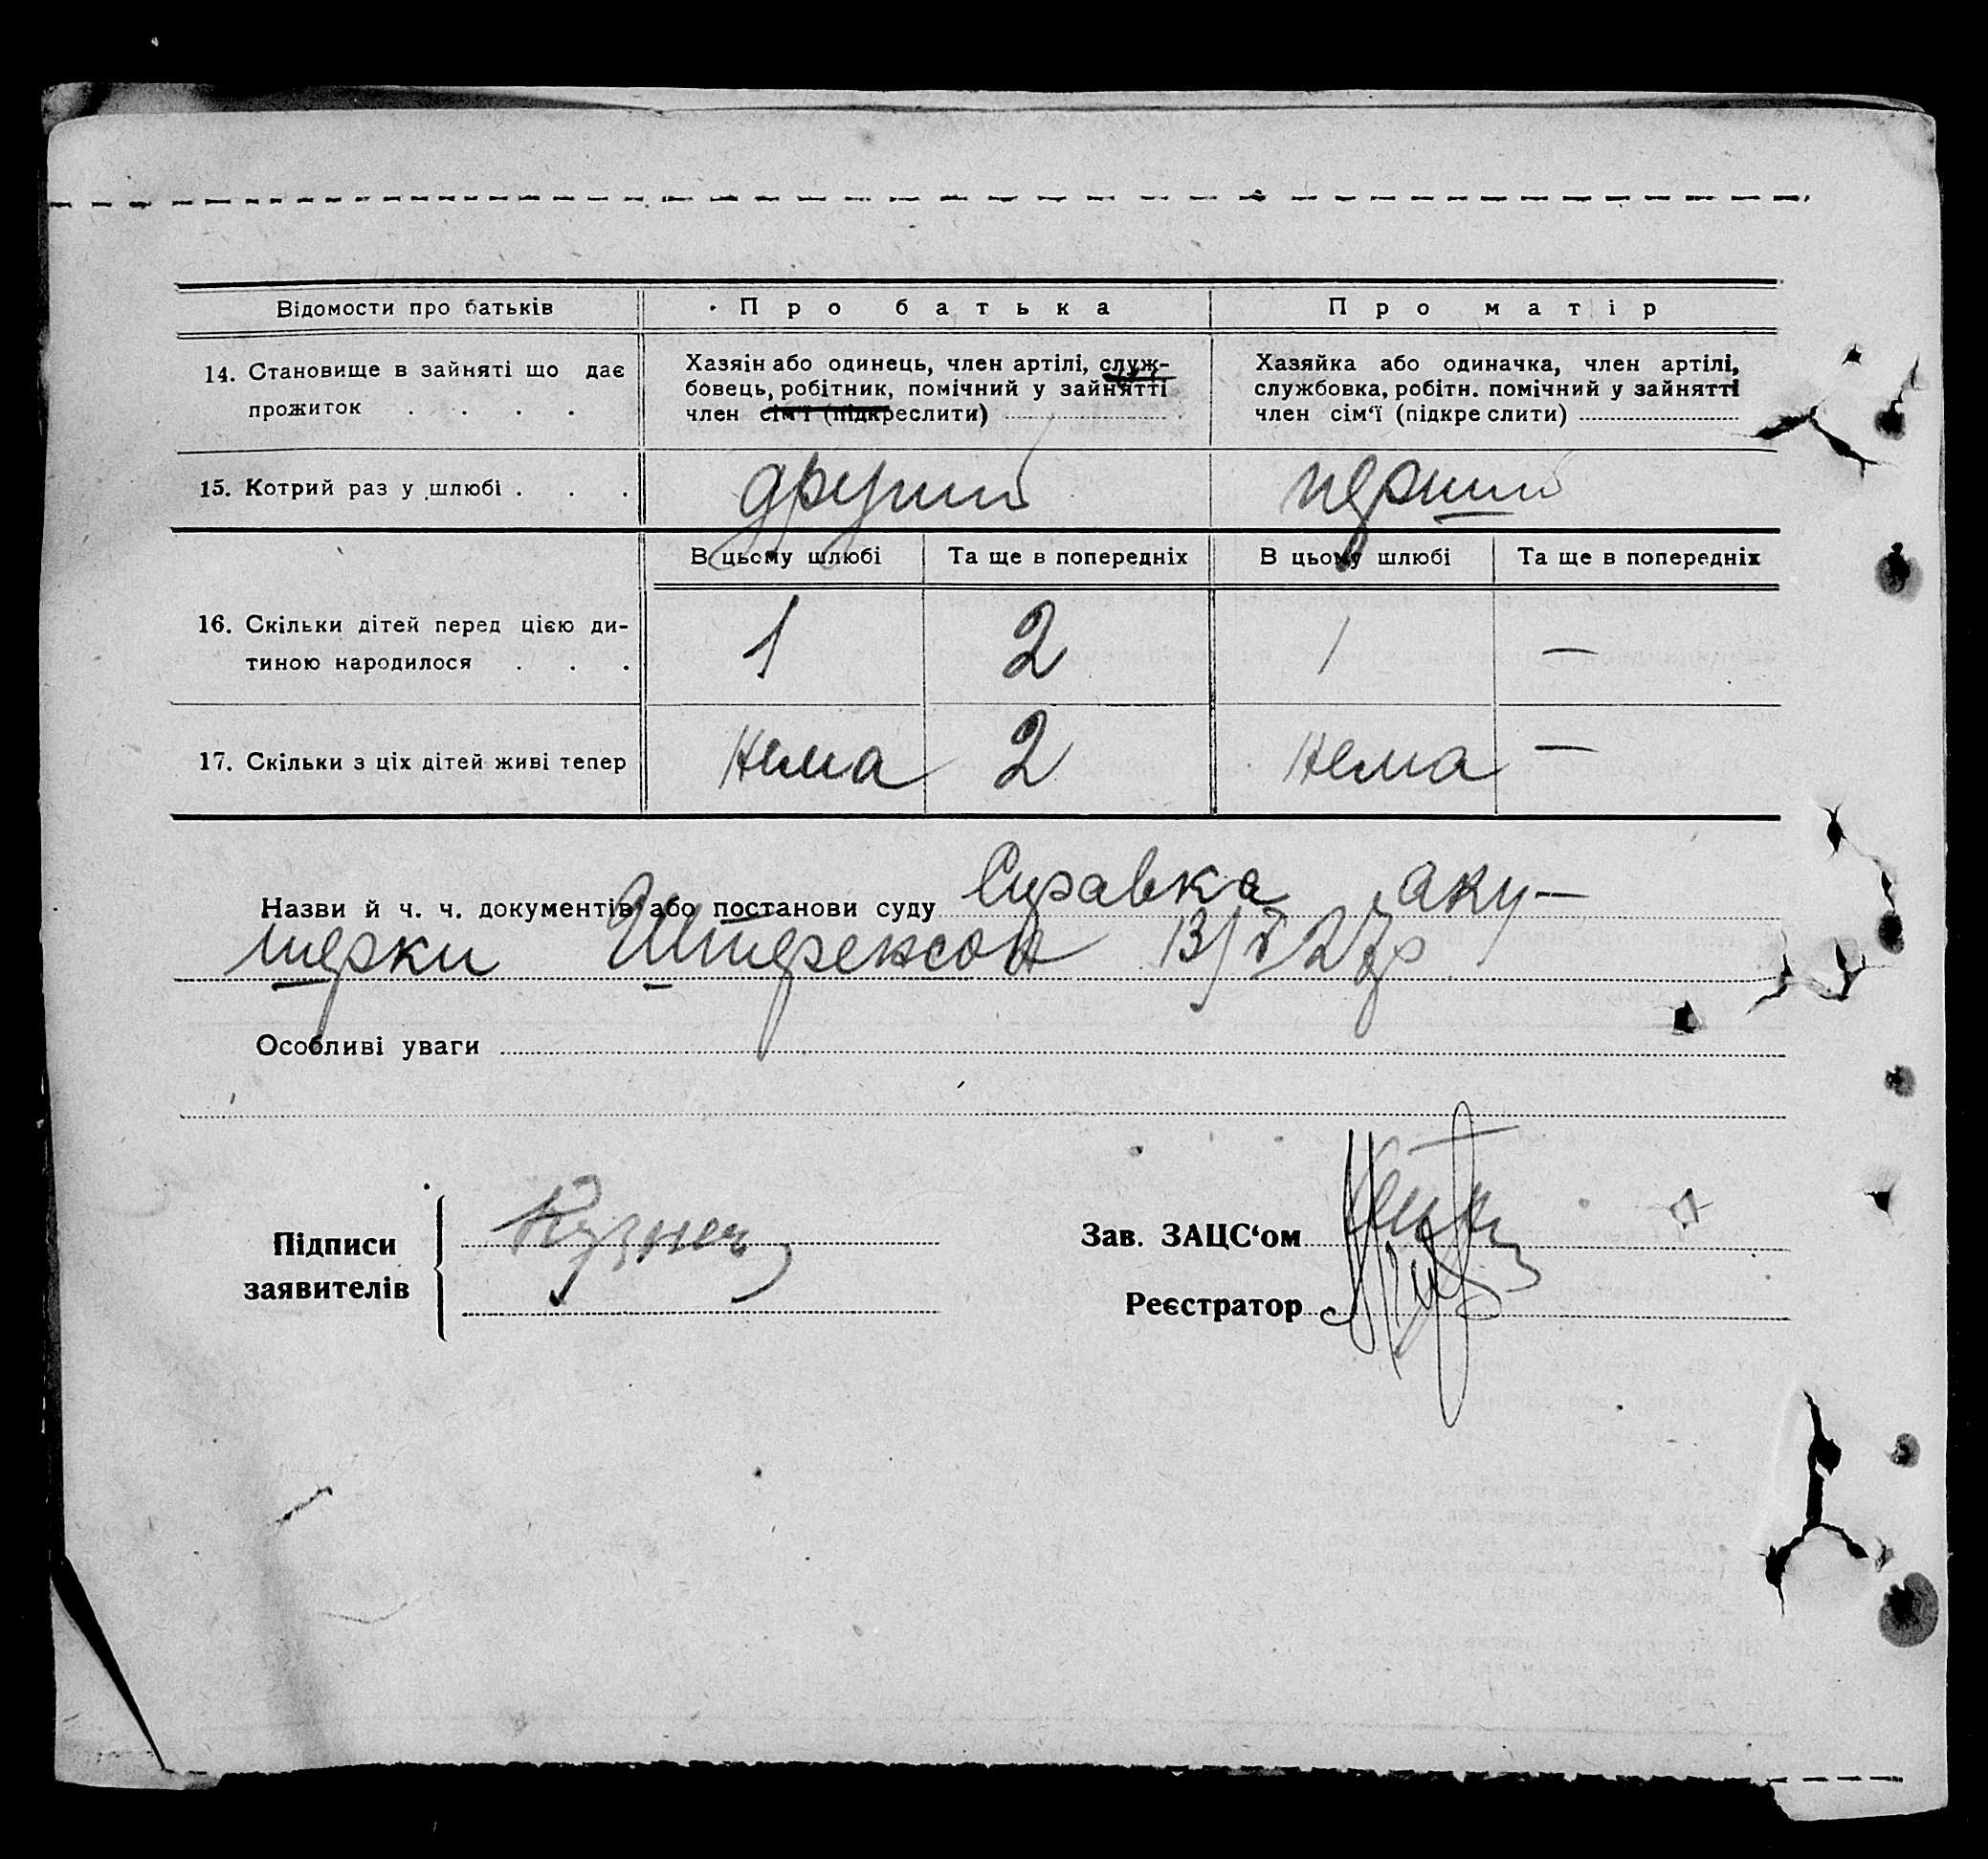 Відомости про батьків
Про батька
Про матір
14. Становище в зайняті що дає
прожиток . . . .
Хазяін або одинець, член артілі, служ-
бовець, робітник, помічний у зайнятті
член сім'ї (підкреслити)
Хазяйка або одиначка, член артілі,
службовка, робітн. помічний у зайнятті
член сім'ї (підкре слити)
15. Котрий раз у шлюбі . . .
другий
перший
В цьому шлюбі
Та ще в попередніх
В цьому шлюбі
Та ще в попередніх
16. Скільки дітей перед цією ди-
тиною народилося . . .
1
2
1
—
17. Скільки з ціх дітей живі тепер
нема
2
нема
—
Назви й ч. ч. документів або постанови суду Справка аку-
шерки
Особливі уваги
Підписи
заявителів
Зав. ЗАЦС'ом
Реєстратор